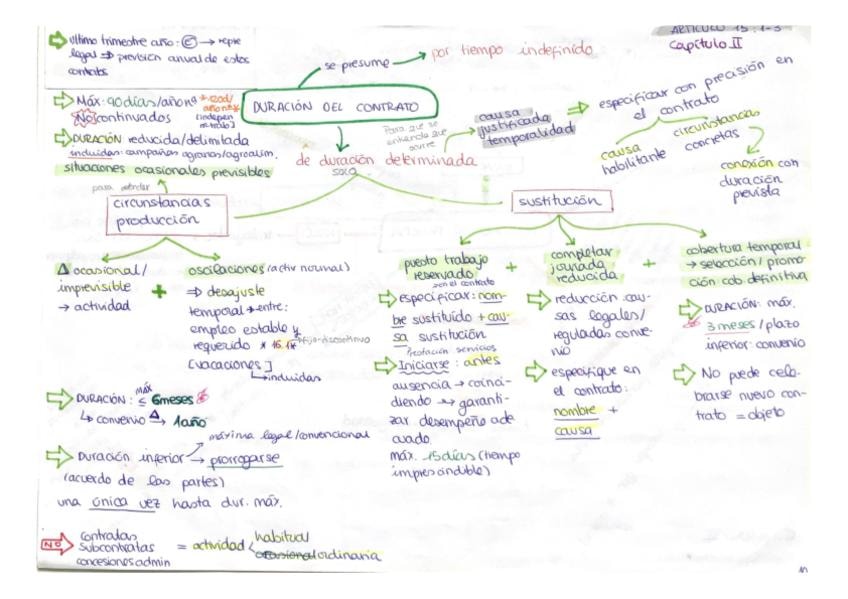 ARTÍCULO 15: 1-3
Capítulo II
último trimestre año: E → repre
legal ⇒ previsión anual de estos
contratos
se presume → por tiempo indefinido
DURACIÓN DEL CONTRATO
Máx: 90 días/año nº
No continuados
DURACIÓN reducida/delimitada
incluidas: campañas agrarias/agroalim.
situaciones ocasionales previsibles
para atender
circunstancias
producción
de duración determinada
solo
Para que se
entienda que
ocurre
causa
justificada
temporalidad
especificar con precisión en
el contrato
causa
habilitante
circunstancias
concretas
conexión con
duración
prevista
sustitución
Δ ocasional/
imprevisible
→ actividad
+
oscilaciones (activ normal)
⇒ desajuste
temporal → entre:
empleo estable y
requerido * 16.1*
fijo-discontinuo
[vacaciones]
incluidas
DURACIÓN: máx ≤ 6 meses
↳ convenio Δ→ 1 año
Duración inferior → prorrogarse
máxima legal/convencional
(acuerdo de las partes)
una única vez hasta dur. máx.
puesto trabajo
reservado
+
en el contrato
especificar: nom-
bre sustituido + cau-
sa sustitución
Prestación servicios
Iniciarse: antes
ausencia → coinci-
diendo → garanti-
zar desempeño ade
cuado.
máx. 15 días (tiempo
imprescindible)
completar
jornada
reducida
+
reducción cau-
sas legales/
reguladas conve-
nio
especifique en
el contrato:
nombre +
causa
cobertura temporal
→ selección/promo-
ción cob definitiva
DURACIÓN: máx.
3 meses/plazo
inferior: convenio
No puede cele-
brarse nuevo con-
trato = objeto
NO
Contratas
Subcontratas
concesiones admin
= actividad < habitual
ordinaria